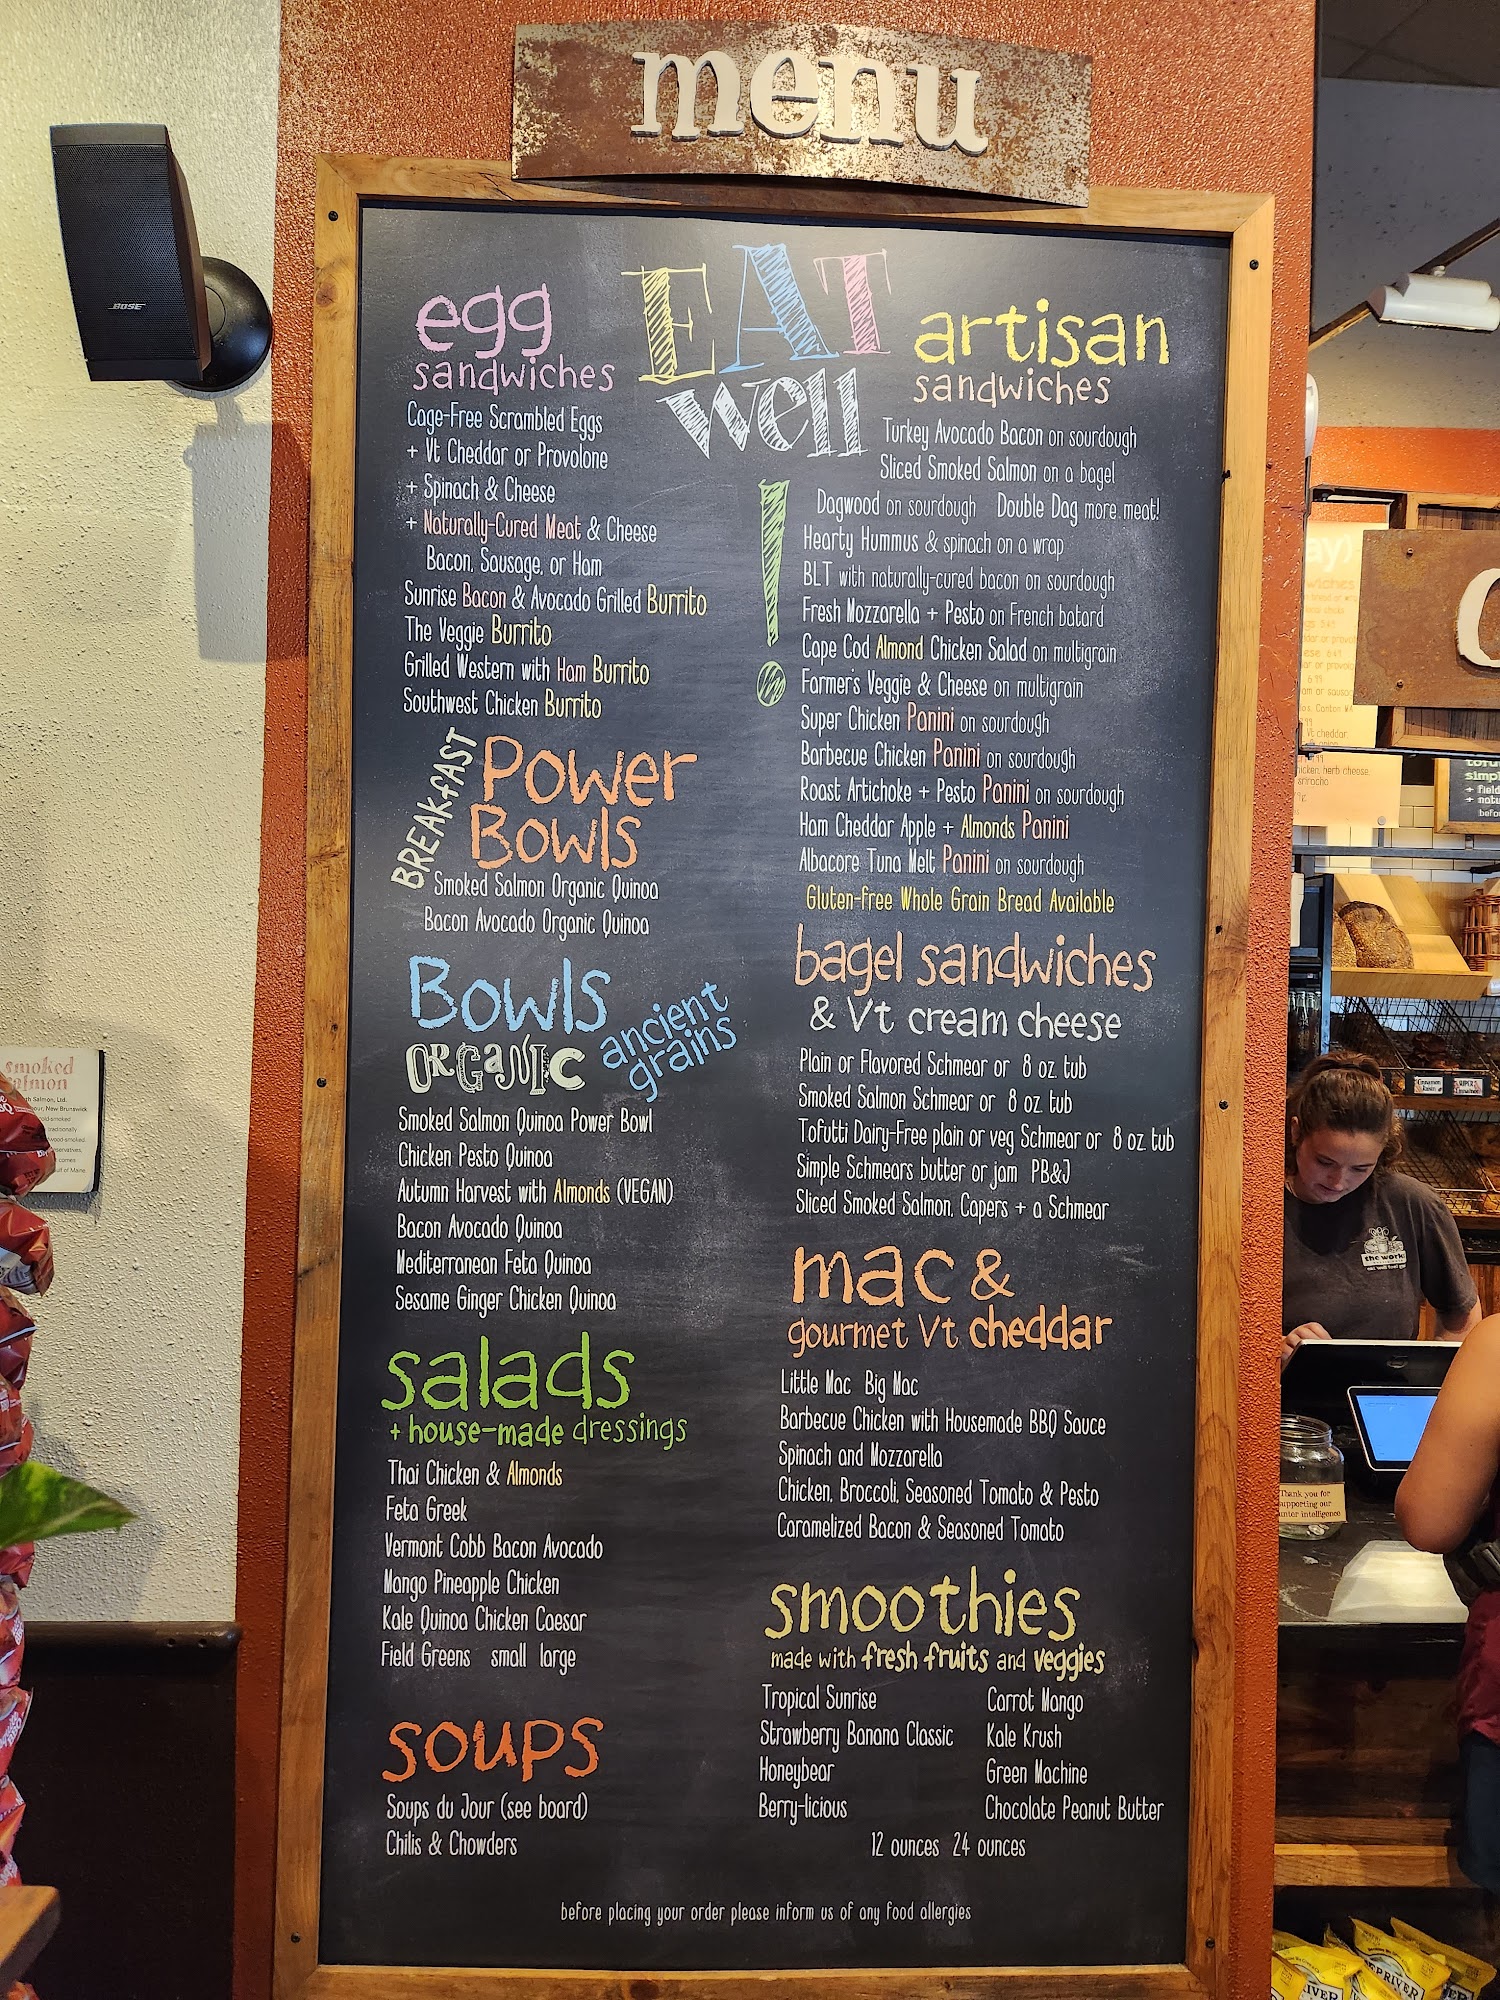 menu
BOSE
EAT
well
!
egg
sandwiches
Cage-Free Scrambled Eggs
+ Vt Cheddar or Provolone
+ Spinach & Cheese
+ Naturally-Cured Meat & Cheese
Bacon, Sausage, or Ham
Sunrise Bacon & Avocado Grilled Burrito
The Veggie Burrito
Grilled Western with Ham Burrito
Southwest Chicken Burrito
BREAKfAST
Power
Bowls
Smoked Salmon Organic Quinoa
Bacon Avocado Organic Quinoa
Bowls
ORGANIC
ancient
grains
Smoked Salmon Quinoa Power Bowl
Chicken Pesto Quinoa
Autumn Harvest with Almonds (VEGAN)
Bacon Avocado Quinoa
Mediterranean Feta Quinoa
Sesame Ginger Chicken Quinoa
salads
+ house-made dressings
Thai Chicken & Almonds
Feta Greek
Vermont Cobb Bacon Avocado
Mango Pineapple Chicken
Kale Quinoa Chicken Caesar
Field Greens small large
soups
Soups du Jour (see board)
Chilis & Chowders
artisan
sandwiches
Turkey Avocado Bacon on sourdough
Sliced Smoked Salmon on a bagel
Dagwood on sourdough Double Dag more meat!
Hearty Hummus & spinach on a wrap
BLT with naturally-cured bacon on sourdough
Fresh Mozzarella + Pesto on French batard
Cape Cod Almond Chicken Salad on multigrain
Farmer's Veggie & Cheese on multigrain
Super Chicken Panini on sourdough
Barbecue Chicken Panini on sourdough
Roast Artichoke + Pesto Panini on sourdough
Ham Cheddar Apple + Almonds Panini
Albacore Tuna Melt Panini on sourdough
Gluten-free Whole Grain Bread Available
bagel sandwiches
& Vt cream cheese
Plain or Flavored Schmear or 8 oz. tub
Smoked Salmon Schmear or 8 oz. tub
Tofutti Dairy-Free plain or veg Schmear or 8 oz. tub
Simple Schmears butter or jam PB&J
Sliced Smoked Salmon, Capers + a Schmear
mac &
gourmet Vt cheddar
Little Mac Big Mac
Barbecue Chicken with Housemade BBQ Sauce
Spinach and Mozzarella
Chicken, Broccoli, Seasoned Tomato & Pesto
Caramelized Bacon & Seasoned Tomato
smoothies
made with fresh fruits and veggies
Tropical Sunrise Carrot Mango
Strawberry Banana Classic Kale Krush
Honeybear Green Machine
Berry-licious Chocolate Peanut Butter
12 ounces 24 ounces
before placing your order please inform us of any food allergies
smoked
Salmon, Ltd.
New Brunswick
Thank you for
supporting our
intelligence